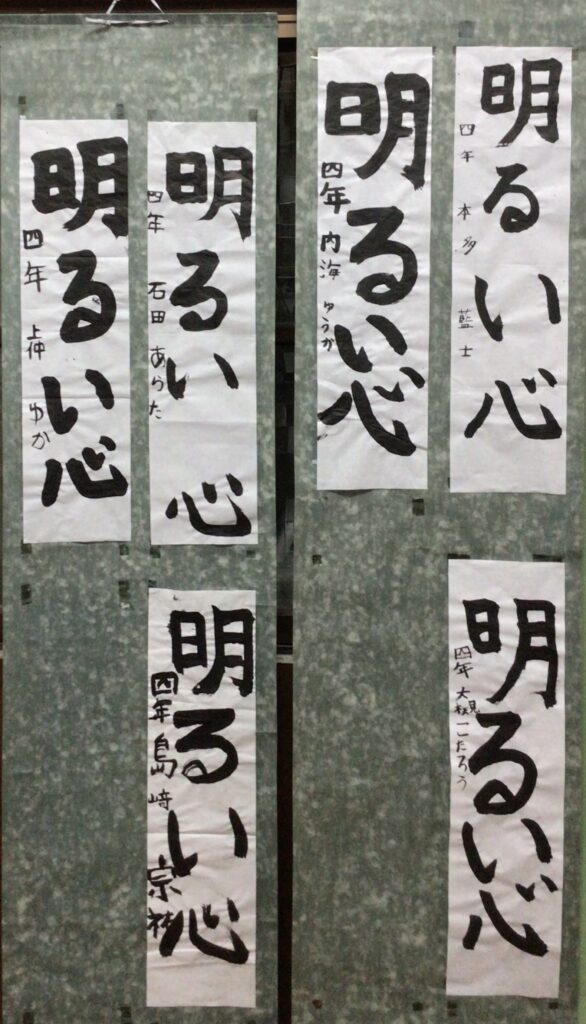 明るい心
四年 本多 藍士
明るい心
四年 内海 ゆうか
明るい心
四年 大槻 こたろう
明るい心
四年 石田 あらた
明るい心
四年 上仲 ゆか
明るい心
四年 島崎 宗